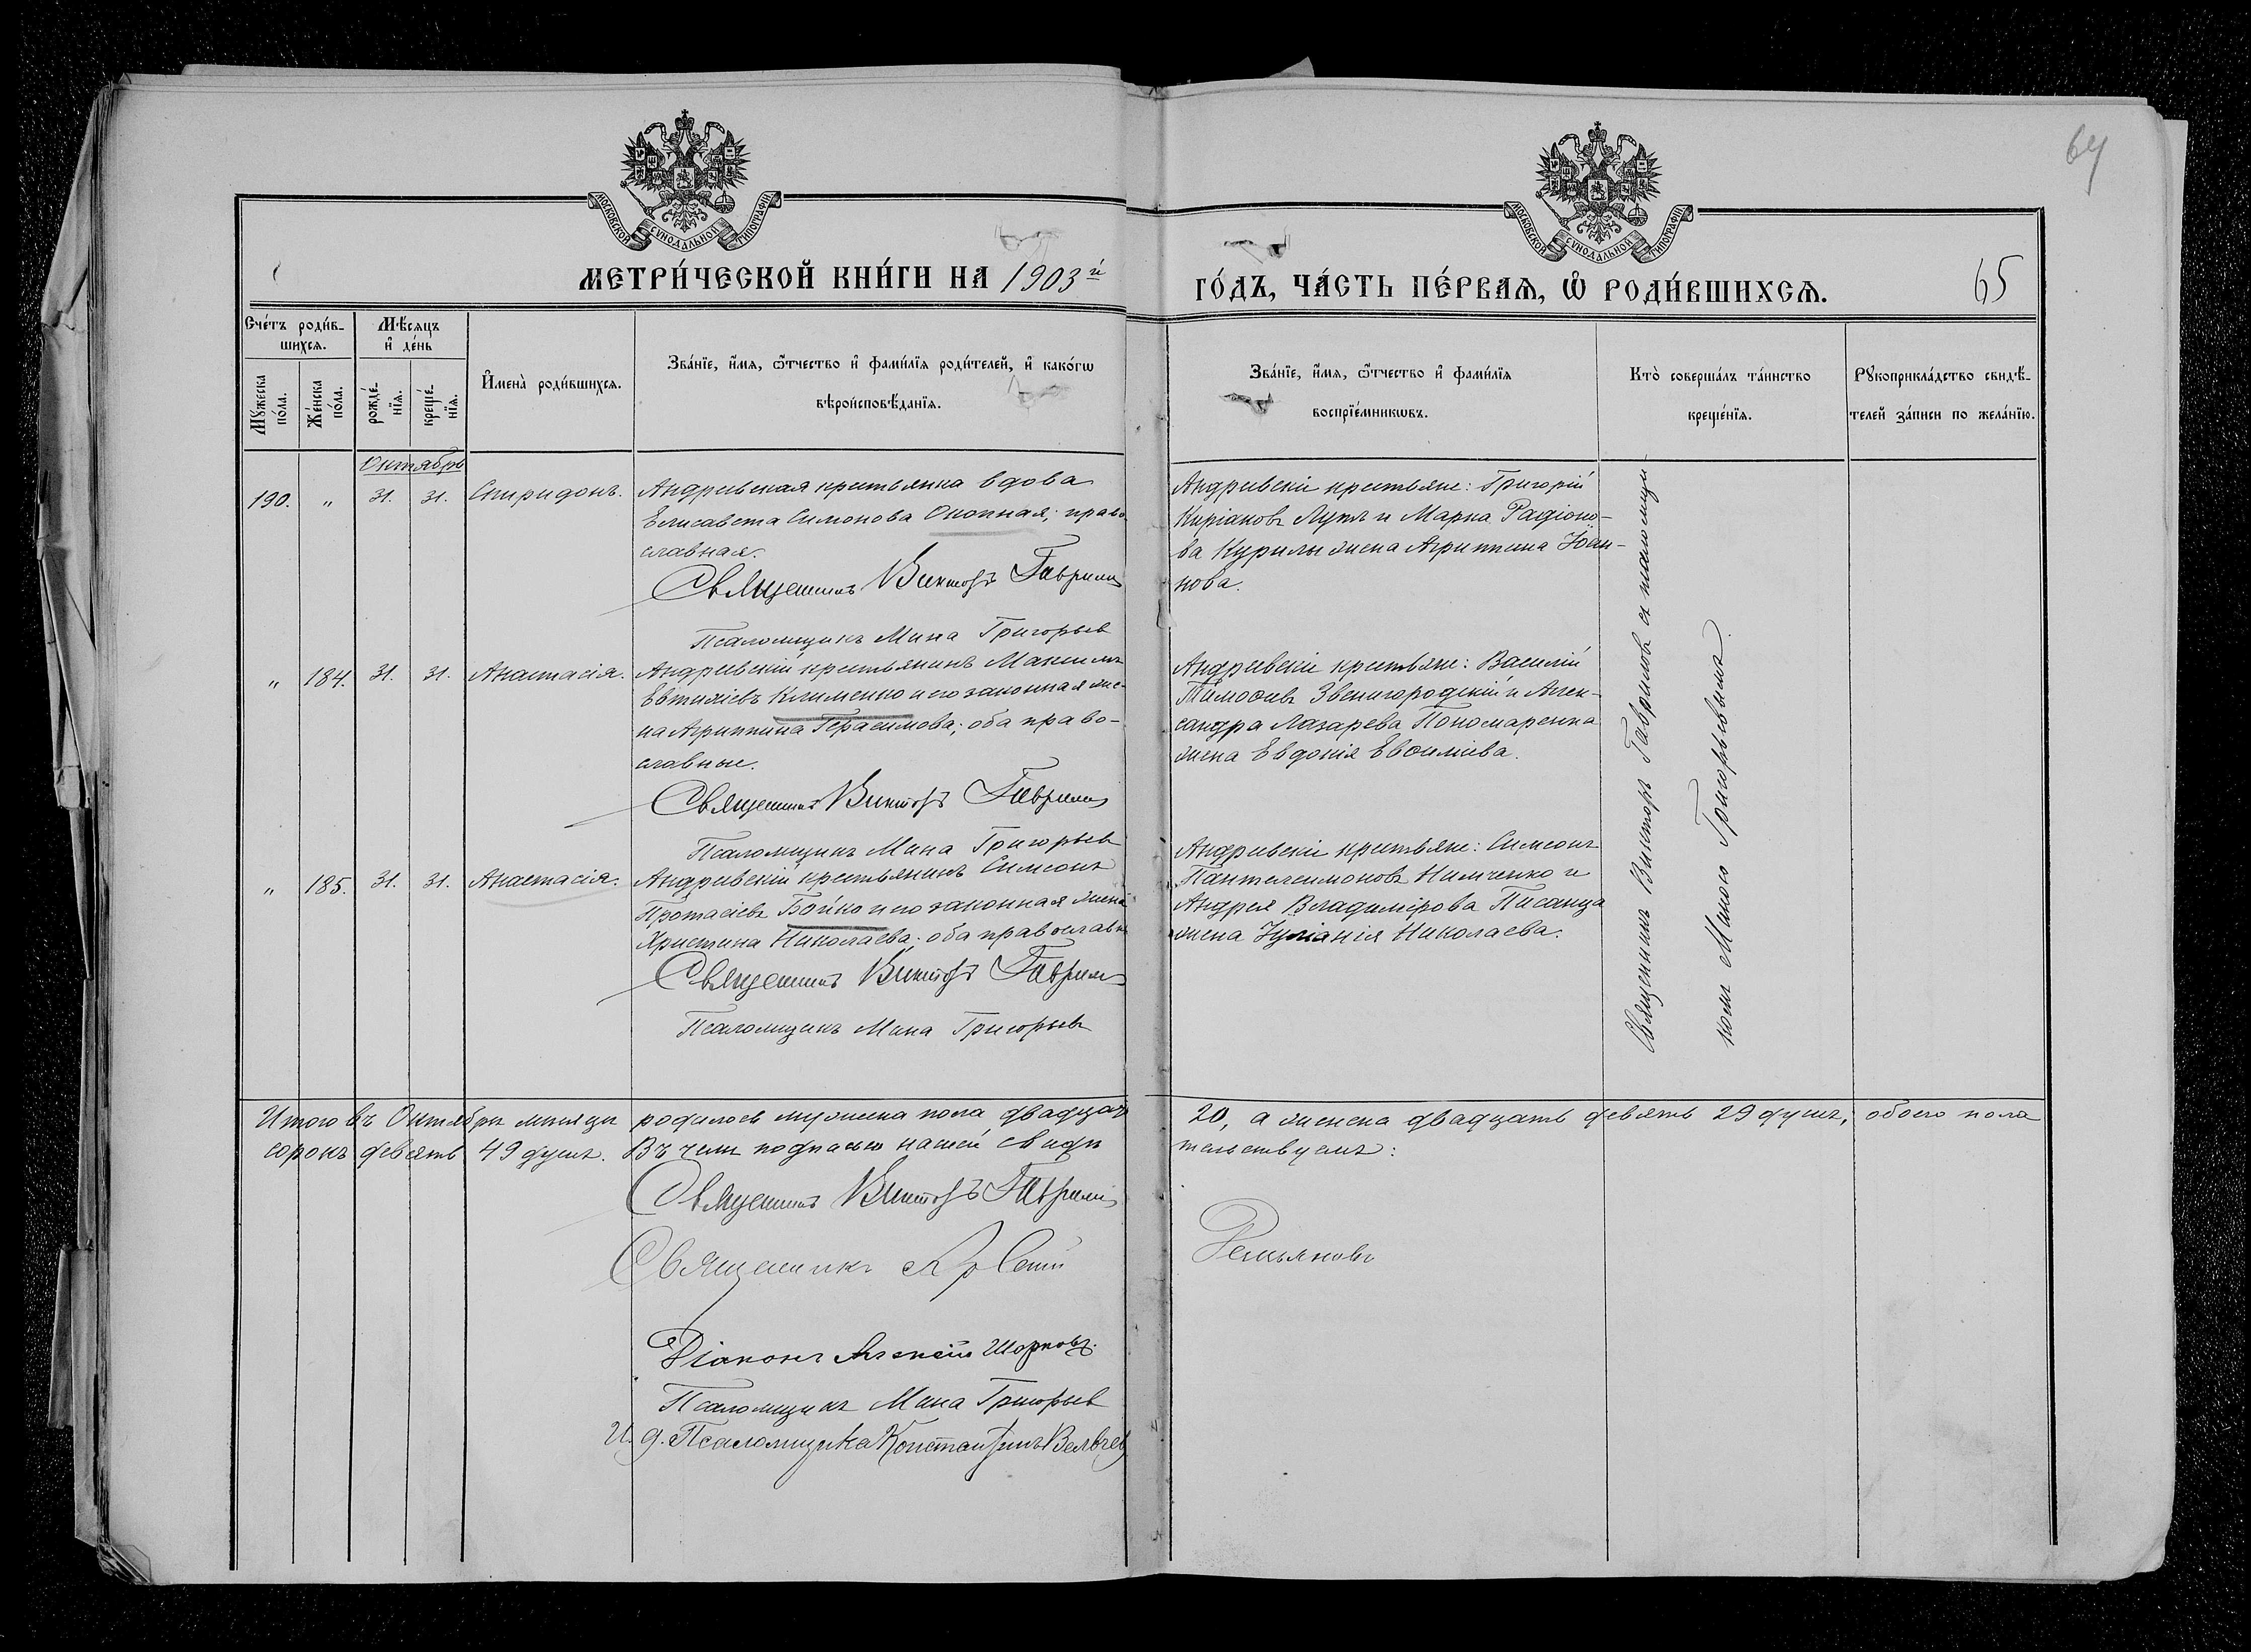 64
МОСКОВСКОЙ СѴНОДАЛЬНОЙ ТИПОГРАФІИ
МОСКОВСКОЙ СѴНОДАЛЬНОЙ ТИПОГРАФІИ
МЕТРИ́ЧЕСКОЙ КНИ́ГИ НА 1903й
ГО́ДЪ, ЧА́СТЬ ПЕ́РВАѦ, Ѡ҆ РОДИ́ВШИХСѦ.
65
Сче́тъ роди́в-
шихсѧ.
Мꙋ́жеска
по́ла.
Же́нска
по́ла.
Мѣ́сѧцъ
и҆ де́нь
рожде́-
нїѧ.
креще́-
нїѧ.
И҆мена̀ роди́вшихсѧ.
Зва́нїе, и҆́мѧ, ѻ҆́тчество и҆ фами́лїѧ роди́телей, и҆ како́гѡ
вѣроисповѣ́данїѧ.
Зва́нїе, и҆́мѧ, ѻ҆́тчество и҆ фами́лїѧ
воспрїе́мникѡвъ.
Кто̀ соверша́лъ та́инство
креще́нїѧ.
Рꙋкоприкла́дство свидѣ́-
телей за́писи по жела́нїю.
Октябрь
190. " 31. 31. Спиридонъ.
Андреевская крестьянка вдова
Елисавета Симонова Окопная; право-
славная.
Священникъ Викторъ Гаврилов
Псаломщикъ Мина Григорьев
Андреевскіе крестьяне: Григорій
Киріаковъ Лупя и Марка Радіоно-
ва Курилы жена Агрипина Іоан-
нова.
" 184. 31. 31. Анастасія.
Андреевскій крестьянинъ Максимъ
Евтихіевъ Клименко и его законная же-
на Агриппина Герасимова; оба право-
славные.
Священникъ Викторъ Гаврилов
Псаломщикъ Мина Григорьев
Андреевскіе крестьяне: Василій
Тимоѳеевъ Звенигородскій и Алек-
сандра Лазарева Пономаренка
жена Евдокія Евѳиміева.
" 185. 31. 31. Анастасія.
Андреевскій крестьянинъ Симеонъ
Протасіевъ Бойко и его законная жена
Христина Николаева; оба православн
Священникъ Викторъ Гаврилов
Псаломщикъ Мина Григорьевъ
Андреевскіе крестьяне: Симеонъ
Пантелеимоновъ Нимченко и
Андрея Владимірова Писанца
жена Іуліанія Николаева.
Священникъ Викторъ Гавриловъ съ псаломщи-
комъ Миною Григорьевымъ.
Итого въ Октябрѣ мѣсяцѣ родилось мужеска пола двадцать 20, а женска двадцать девять 29 душъ; обоего пола
сорокъ девять 49 душъ. Въ чемъ подписью нашей свидѣтельствуемъ:
Священникъ Викторъ Гаврилов
Священникъ
Демьяновъ
Діаконъ Алексій Шорновъ.
Псаломщикъ Мина Григорьев
И. д. Псаломщика Константинъ